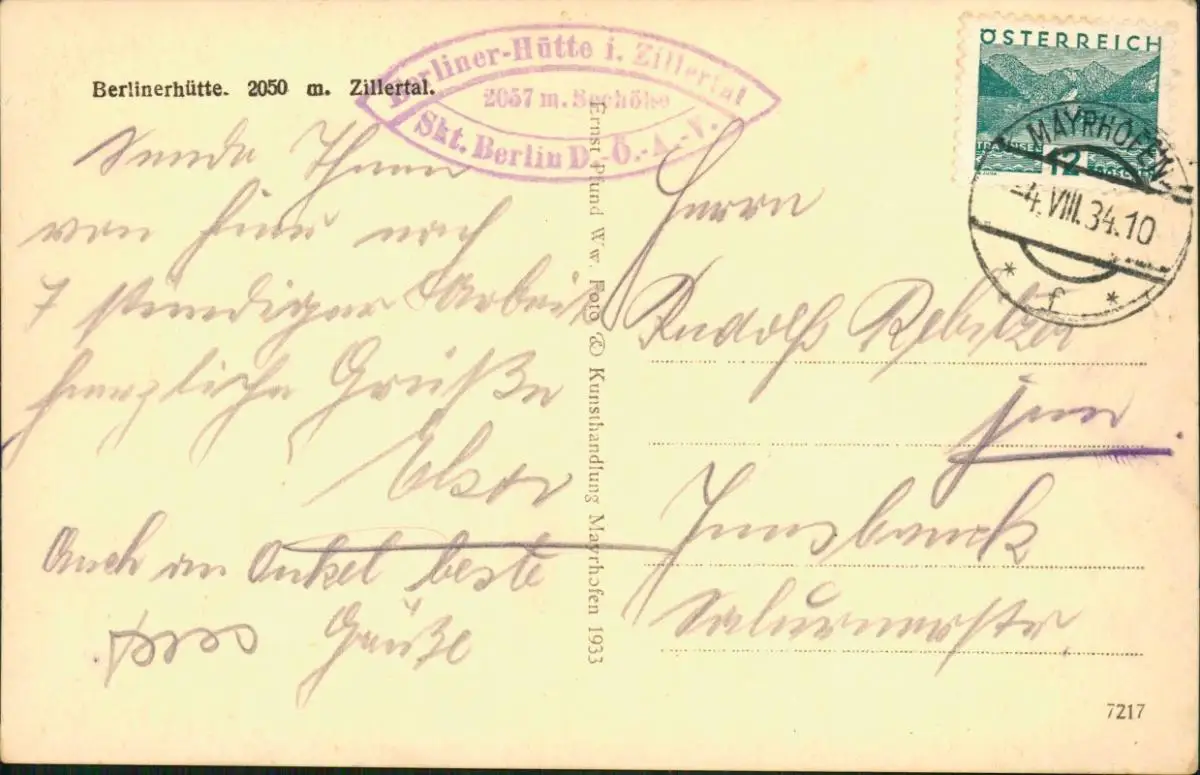 Berlinerhütte. 2050 m. Zillertal.
Berliner-Hütte i. Zillertal
2057 m. Seehöhe
Skt. Berlin D.-Ö.-A.-V.
ÖSTERREICH
12
GROSCHEN
MAYRHOFEN
-4.VIII.34.10
* f *
Sende Ihnen
von hier nach
7 stündiger Arbeit
herzliche Grüße
Auch an Onkel beste
Grüße
Ernst Pfund Ww. Foto & Kunsthandlung Mayrhofen 1933
Herrn
Rudolf Rebitzer
jun
Innsbruck
Salurnerstr
7217